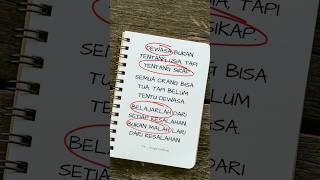 DEWASA BUKAN
TENTANG USIA, TAPI
TENTANG SIKAP.
SEMUA ORANG BISA
TUA, TAPI BELUM
TENTU DEWASA.
BELAJARLAH DARI
SETIAP KESALAHAN,
BUKAN MALAH LARI
DARI KESALAHAN